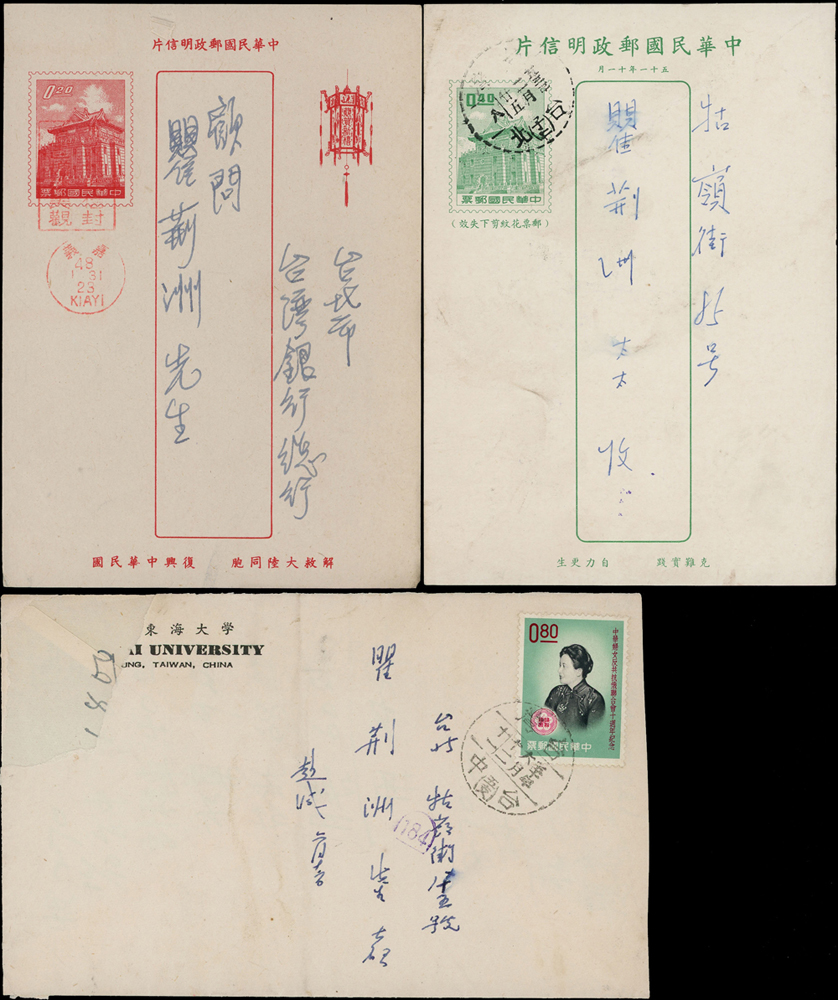 中華民國郵政明信片
0.20
中華民國郵票
封觀
嘉義
48
1 31
23
KIAYI
恭賀新禧
台北市
台灣銀行總行
顧問
瞿荊洲 先生
解救大陸同胞 復興中華民國
中華民國郵政明信片
五十一年十一月
0.40
中華民國郵票
(郵票花紋剪下失效)
牯嶺街 85号
瞿荊洲 太太 收
克難實踐 自力更生
東海大学
AI UNIVERSITY
UNG, TAIWAN, CHINA
0.80
中華婦女反共抗俄聯合會十週年紀念
中華民國郵票
台中
台北 牯嶺街
瞿荊洲
趙
(184)